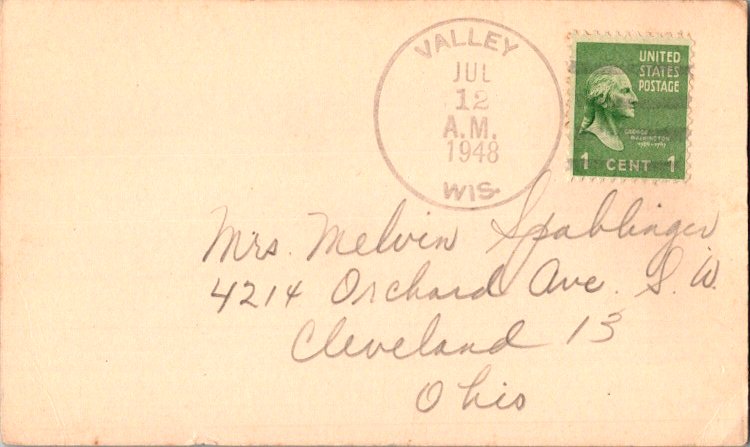 VALLEY
JUL
12
A.M.
1948
WIS.
UNITED
STATES
POSTAGE
GEORGE
WASHINGTON
1789-1797
1 CENT 1
Mrs. Melvin Spahlinger
4214 Orchard Ave. S.W.
Cleveland 13
Ohio